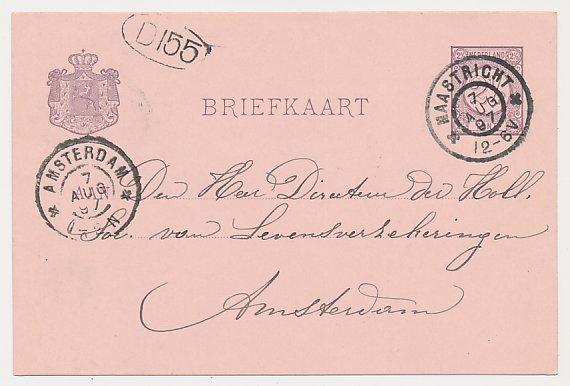 D155
NEDERLAND
MAASTRICHT
7
AUG
97
12-6V
BRIEFKAART
AMSTERDAM
7
AUG
97
Den Heer Directeur der Holl.
Soc. van Levensverzekeringen
Amsterdam